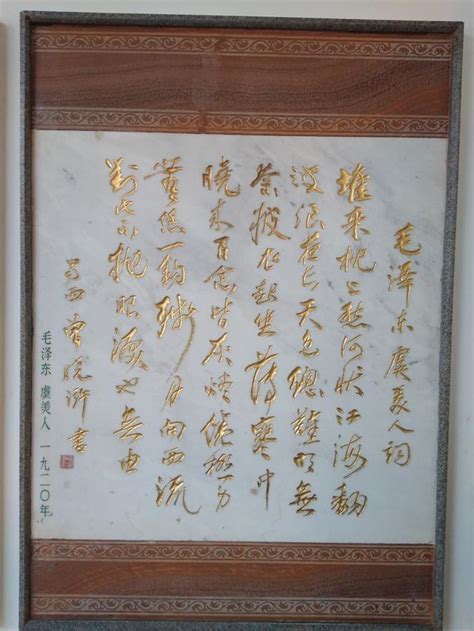 毛泽东虞美人词
堆来枕上愁何状江海翻
波浪夜长天色總難明無
奈披衣起坐薄寒中
晓来百念皆灰烬倦极身
無凭一钩残月向西流
對此不抛眼泪也無由
西曾晓浒書
毛泽东 虞美人 一九二〇年